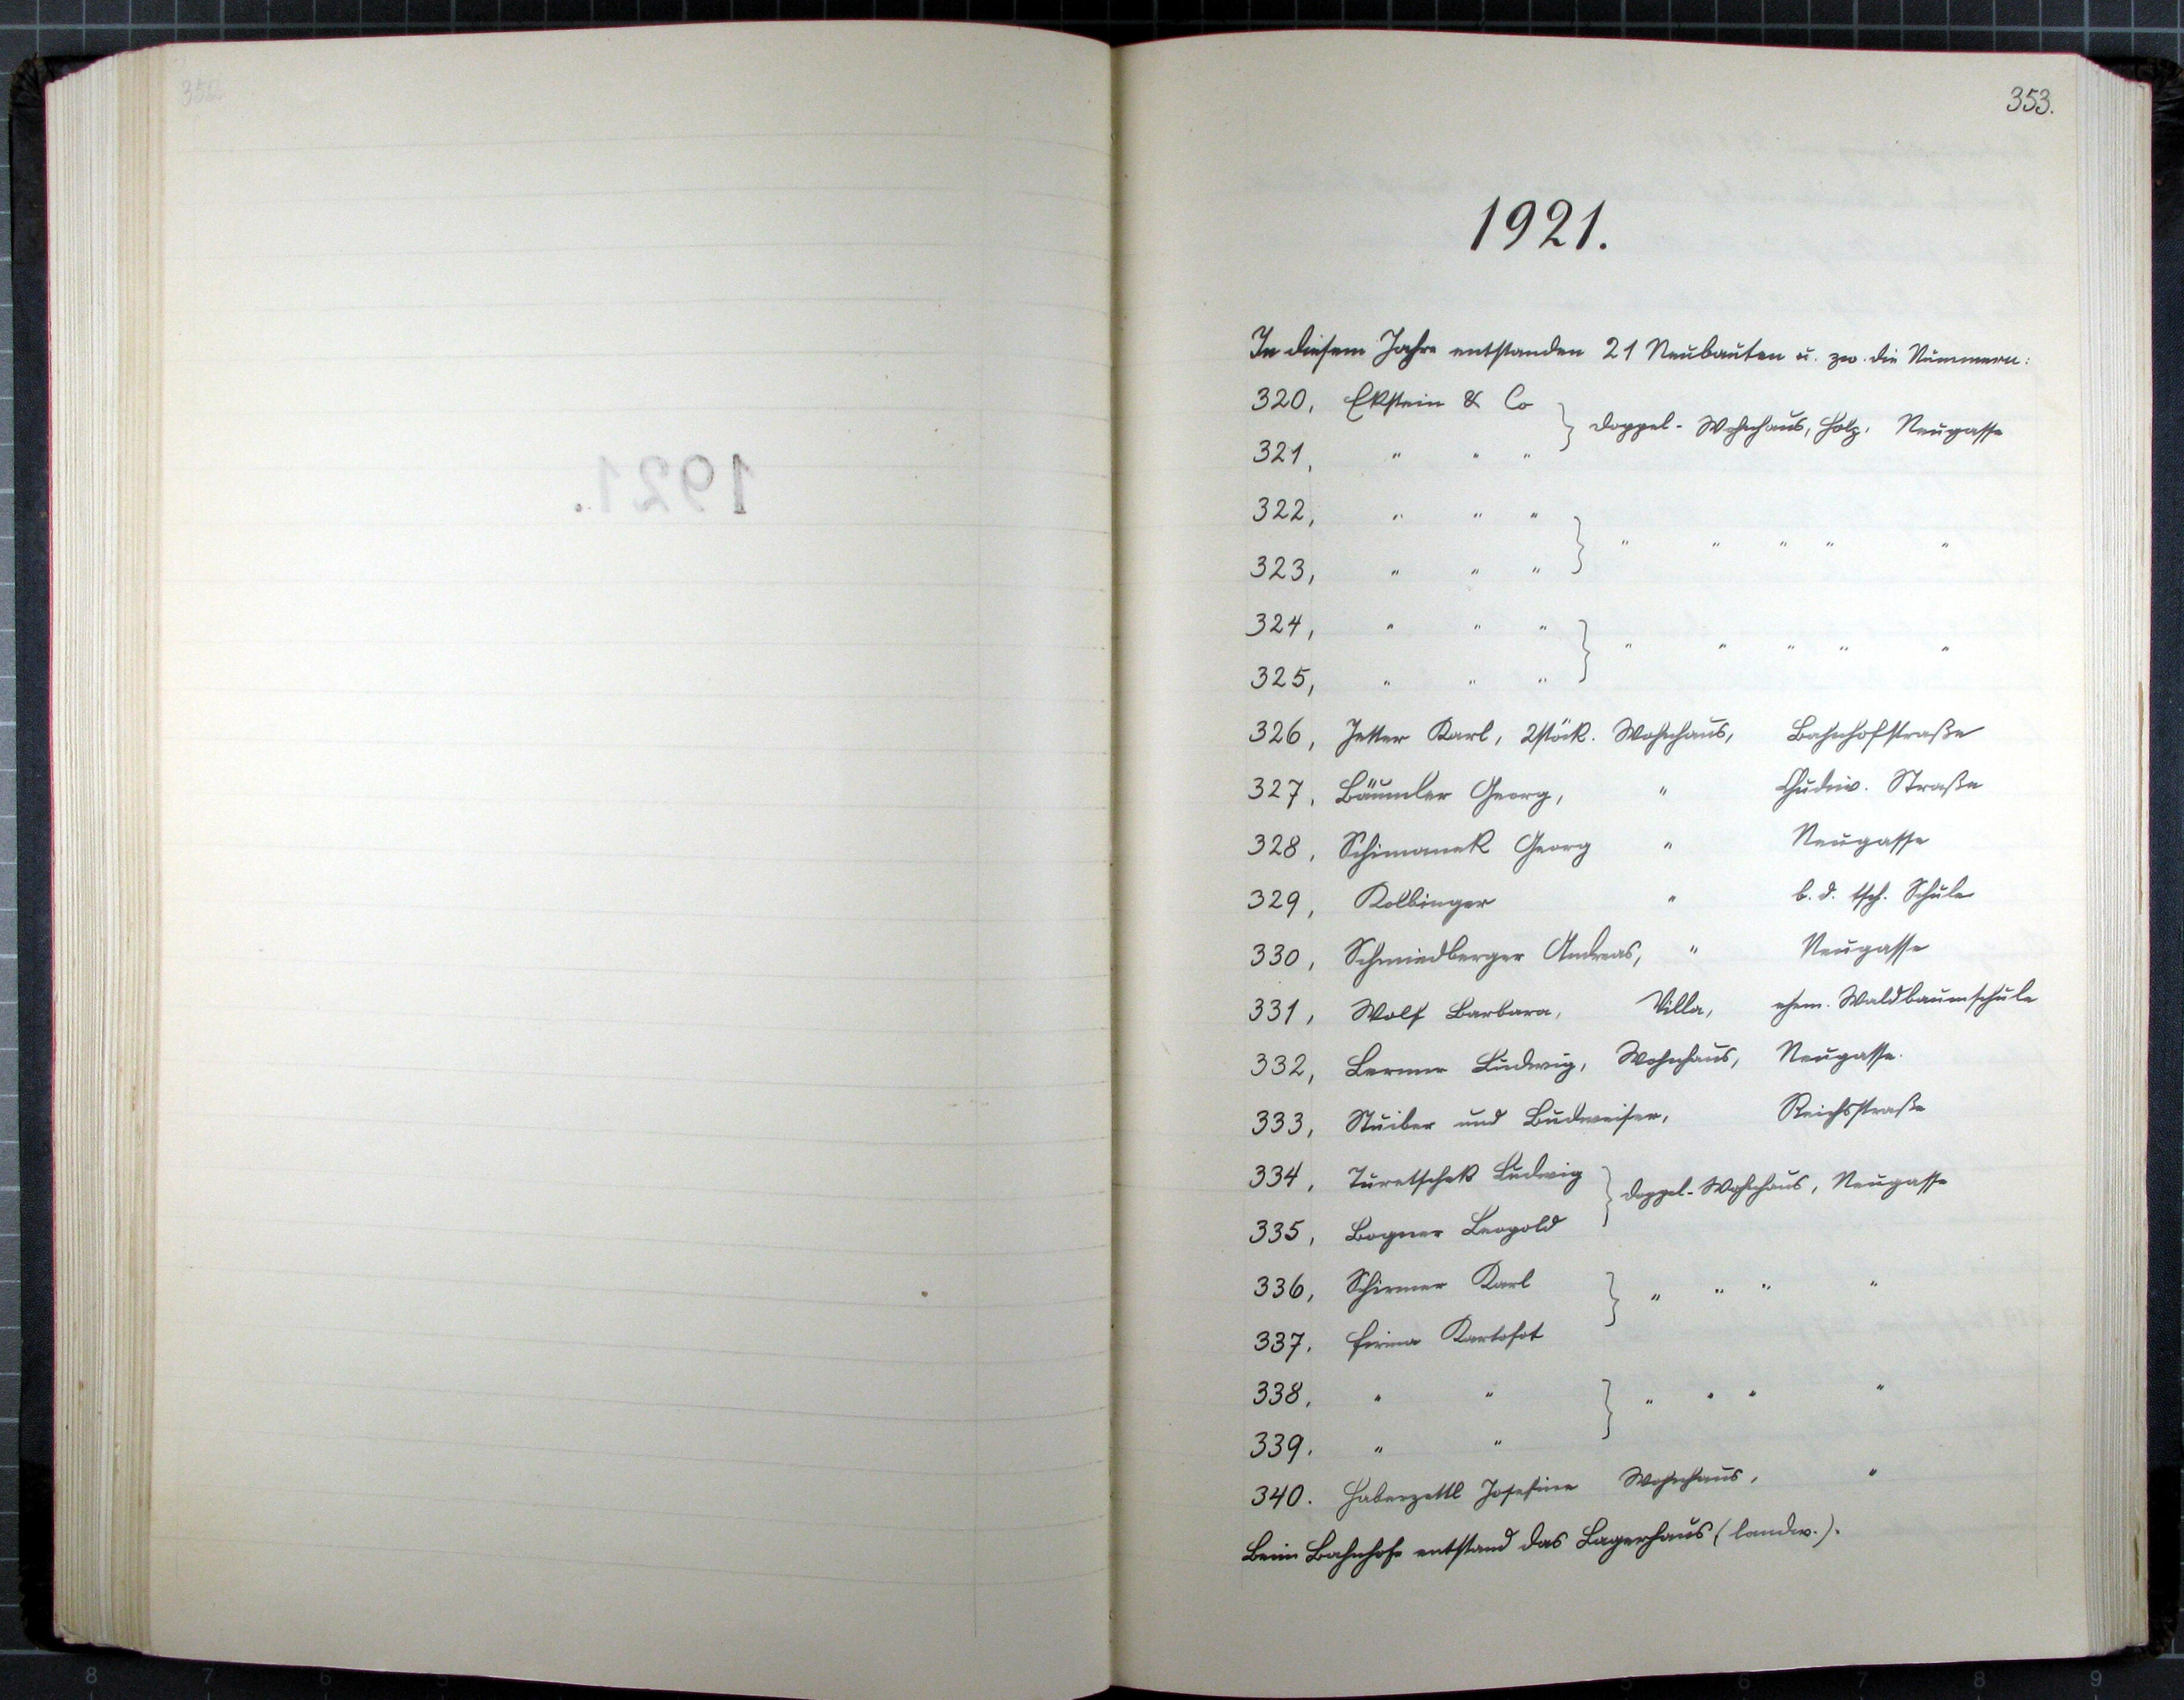 352.
353.
1921.
In diesem Jahre entstanden 21 Neubauten u. zw. die Nummern:
320, Ekstein & Co } Doppel-Wohnhaus, Holz, Neugasse
321, " " "
322, " " " } " " " " "
323, " " "
324, " " " } " " " " "
325, " " "
326, Jetter Karl, 2stöck. Wohnhaus, Bahnhofstraße
327, Bäumler Georg, " Chudiw. Straße
328, Schimanek Georg " Neugasse
329, Kolbinger " b. d. tsch. Schule
330, Schmiedberger Andreas, " Neugasse
331, Wolf Barbara, Villa, ehem. Waldbaumschule
332, Lermer Ludwig, Wohnhaus, Neugasse.
333, Stuiber und Budweiser, Reichsstraße
334, Turetschek Ludwig } Doppel-Wohnhaus, Neugasse
335, Bogner Leopold
336, Schirmer Karl } " " " "
337. Firma Kartofot
338, " " } " " " "
339. " "
340. Haberzettl Josefine Wohnhaus, "
Beim Bahnhofe entstand das Lagerhaus (landw.).